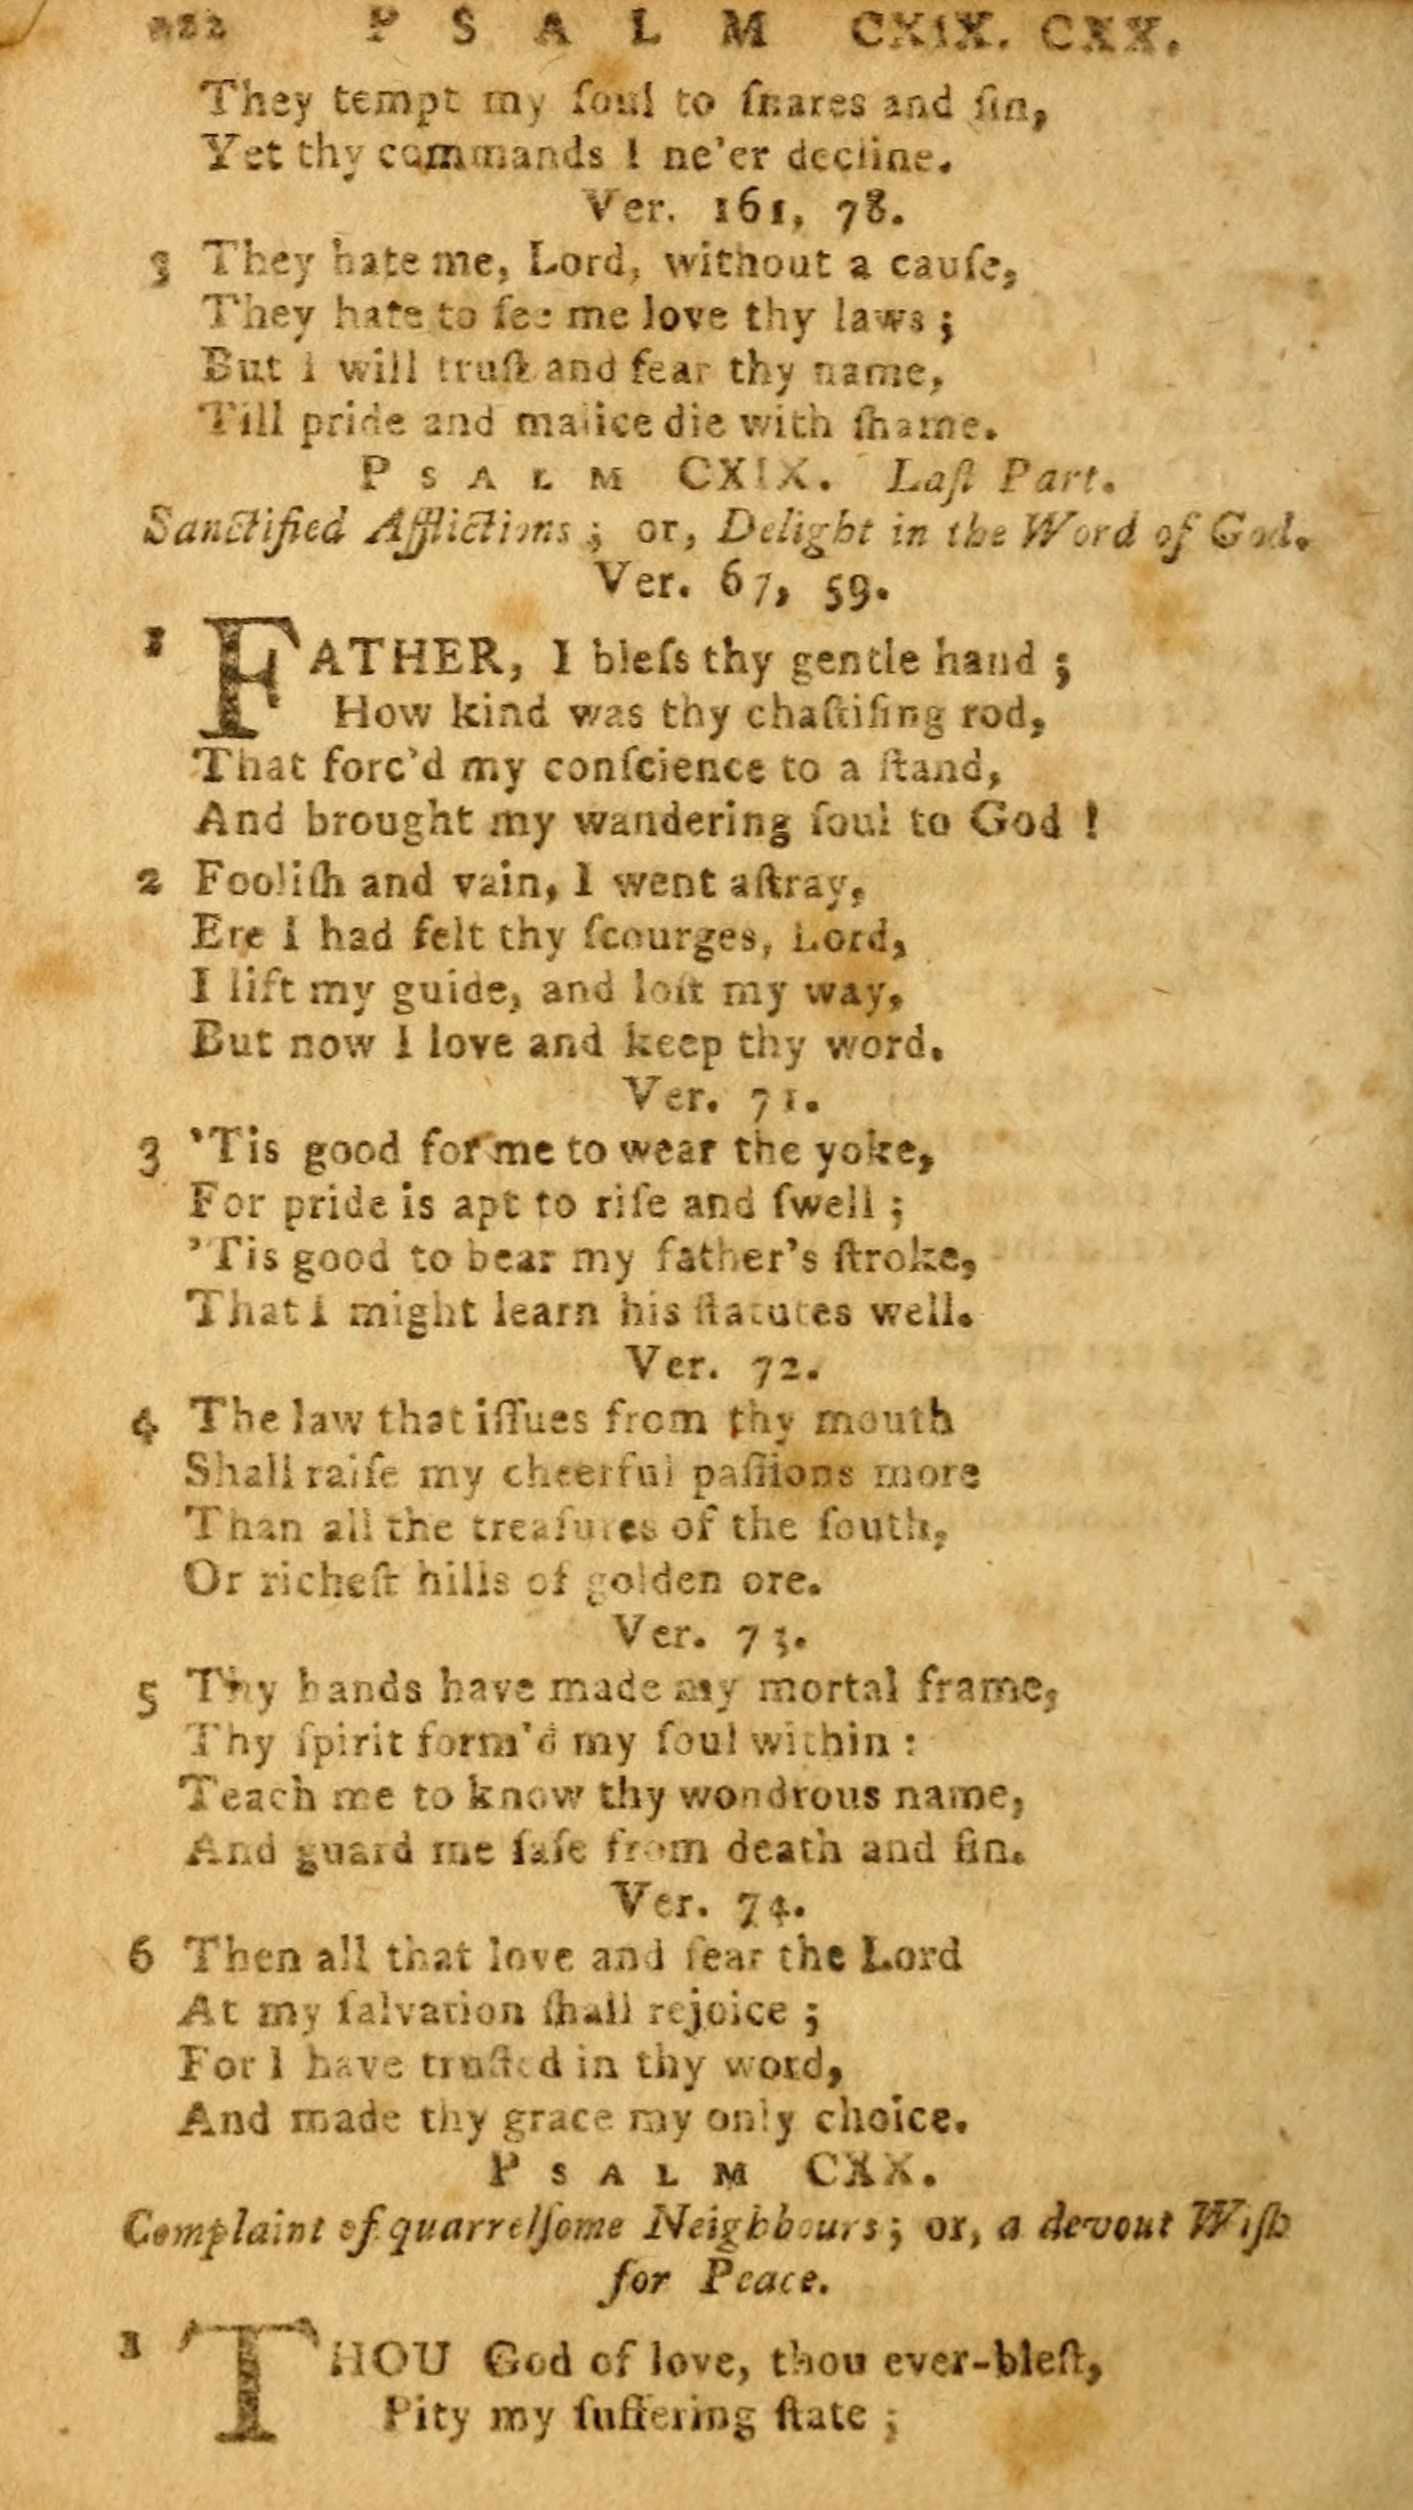 222 PSALM CXIX. CXX.
They tempt my ſoul to ſnares and ſin,
Yet thy commands I ne'er decline.
Ver. 161, 78.
3 They hate me, Lord, without a cauſe,
They hate to ſee me love thy laws ;
But I will truſt and fear thy name,
Till pride and malice die with ſhame.
PSALM CXIX. Laſt Part.
Sanctified Afflictions ; or, Delight in the Word of God.
Ver. 67, 59.
1 FATHER, I bleſs thy gentle hand ;
How kind was thy chaſtiſing rod,
That forc'd my conſcience to a ſtand,
And brought my wandering ſoul to God !
2 Fooliſh and vain, I went aſtray,
Ere I had felt thy ſcourges, Lord,
I lift my guide, and loſt my way,
But now I love and keep thy word.
Ver. 71.
3 'Tis good for me to wear the yoke,
For pride is apt to riſe and ſwell ;
'Tis good to bear my father's ſtroke,
That I might learn his ſtatutes well.
Ver. 72.
4 The law that iſſues from thy mouth
Shall raiſe my cheerful paſſions more
Than all the treaſures of the ſouth,
Or richeſt hills of golden ore.
Ver. 73.
5 Thy hands have made my mortal frame,
Thy ſpirit form'd my ſoul within :
Teach me to know thy wondrous name,
And guard me ſafe from death and ſin.
Ver. 74.
6 Then all that love and fear the Lord
At my ſalvation ſhall rejoice ;
For I have truſted in thy word,
And made thy grace my only choice.
PSALM CXX.
Complaint of quarrelſome Neighbours ; or, a devout Wiſh
for Peace.
1 THOU God of love, thou ever-bleſt,
Pity my ſuffering ſtate ;